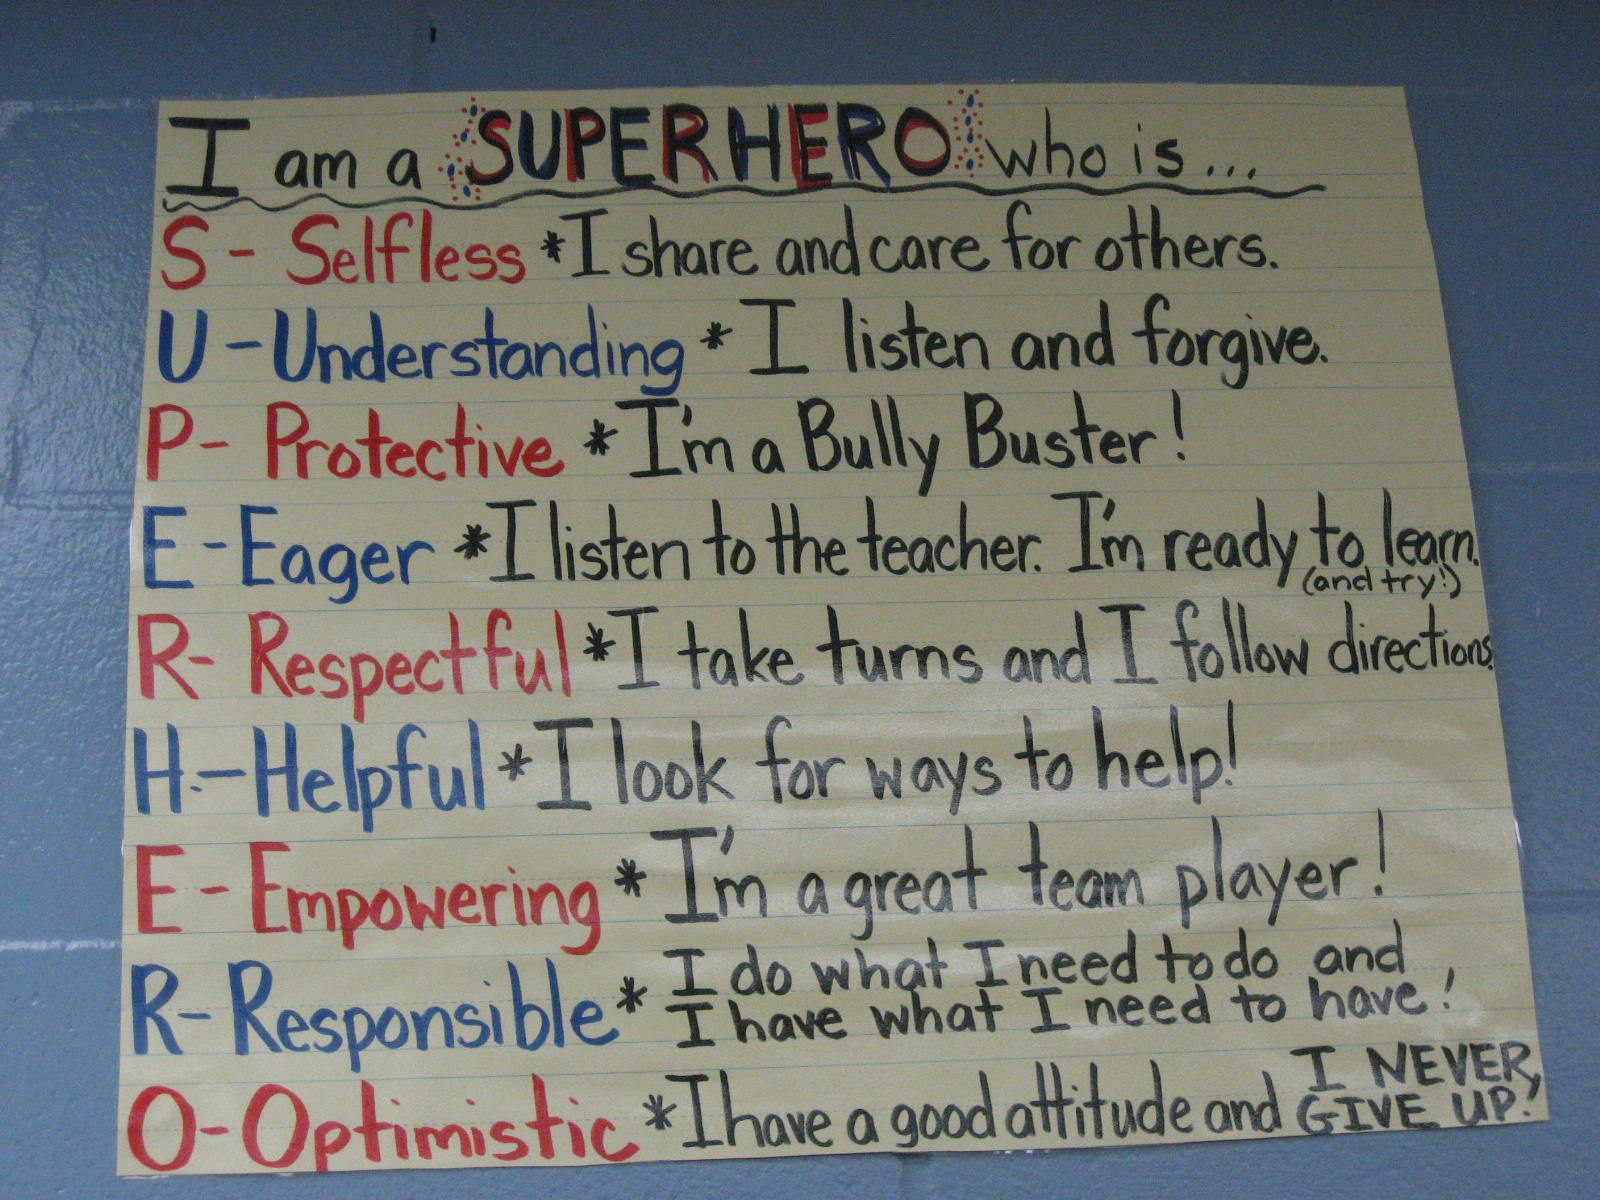 I am a SUPERHERO who is...
S - Selfless *I share and care for others.
U - Understanding * I listen and forgive.
P - Protective * I'm a Bully Buster!
E - Eager *I listen to the teacher. I'm ready to learn.
(and try!)
R - Respectful *I take turns and I follow directions.
H - Helpful *I look for ways to help!
E - Empowering * I'm a great team player!
R - Responsible * I do what I need to do and
I have what I need to have!
O - Optimistic *I have a good attitude and I NEVER
GIVE UP!